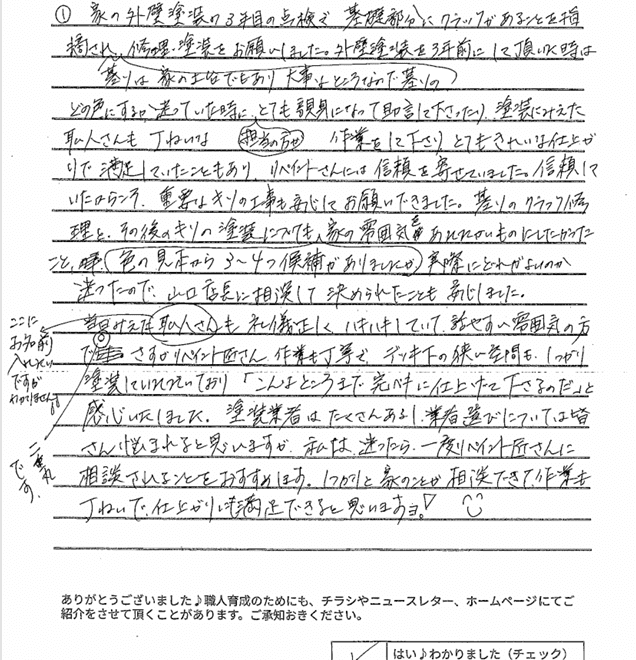 ① 家の外壁塗装の3年目の点検で、基礎部分にクラックがあることを指
摘され、修理、塗装をお願いしました。外壁塗装を3年前にして頂いた時は
基礎は家の土台でもあり大事なところなので基礎の
どの色にするか迷っていた時に、とても親身になって助言して下さったり、塗装にみえた
職人さんも丁ねいな 担当の方が 作業をして下さりとてもきれいな仕上が
りで満足していたこともあり、リペイントさんには信頼を寄せていました。信頼して
いたからこそ、重要なキソの工事も安心してお願いできました。基礎のクラック修
理と、その後のキソの塗装についても、家の雰囲気あたたかいものにしたかった
こと、 色の見本から3〜4つ候補がありましたが 実際にどれがよいのか
迷ったので、山口店長に相談して決められたことも安心しました。
ここに
お名前
入れたい
ですが
わかりません
当日みえた職人さんも礼儀正しくハキハキしていて、話やすい雰囲気の方
で さすがリペイント匠さん、作業も丁寧で、デッキ下の狭い空間も、しっかり
塗装していただいており「こんなところまで完ペキに仕上げて下さるのだ」と
感じいたしました。塗装業者はたくさんあるし、業者選びについては皆
さん悩まれると思いますが、私は、迷ったら、一度リペイント匠さんに
相談されることをおすすめします。しっかりと家のことが相談できて、作業も
丁ねいで、仕上がりにも満足できると思いますョ。
です。
ありがとうございました♪職人育成のためにも、チラシやニュースレター、ホームページにてご
紹介をさせて頂くことがあります。ご承知おきください。
✓ はい♪わかりました（チェック）